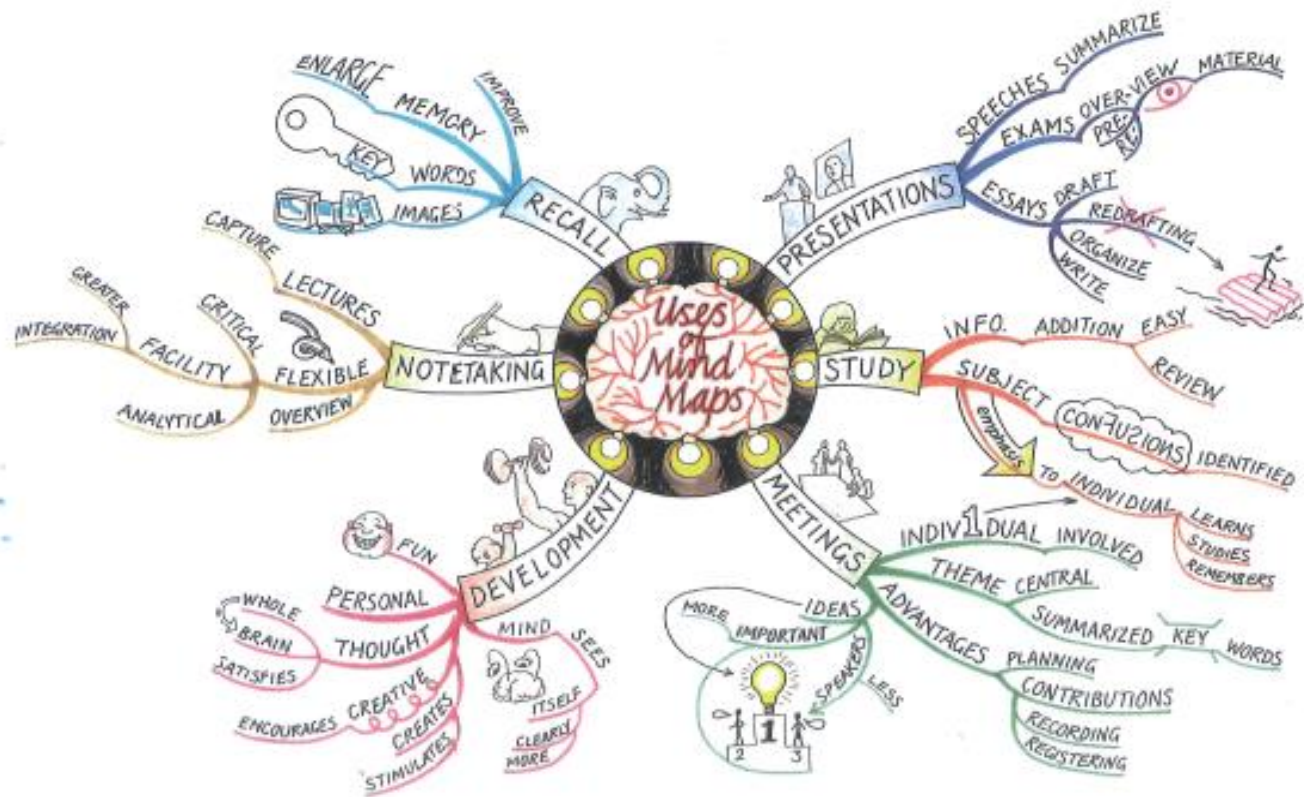 Uses
of
Mind
Maps
RECALL
IMPROVE
MEMORY
ENLARGE
WORDS
KEY
IMAGES
PRESENTATIONS
SPEECHES SUMMARIZE
EXAMS OVER-VIEW MATERIAL
PRE-
RE-
ESSAYS DRAFT
REDRAFTING
ORGANIZE
WRITE
STUDY
INFO. ADDITION EASY
REVIEW
SUBJECT CONFUSIONS IDENTIFIED
emphasis TO INDIVIDUAL LEARNS
STUDIES
REMEMBERS
MEETINGS
INDIV1DUAL INVOLVED
THEME CENTRAL
SUMMARIZED KEY WORDS
ADVANTAGES PLANNING
CONTRIBUTIONS
RECORDING
REGISTERING
IDEAS
MORE IMPORTANT
SPEAKERS LESS
2 1 3
DEVELOPMENT
FUN
PERSONAL
THOUGHT
WHOLE
BRAIN
SATISFIES
ENCOURAGES CREATIVE
CREATES
STIMULATES
MIND SEES
ITSELF
CLEARLY
MORE
NOTETAKING
LECTURES
CAPTURE
FLEXIBLE
OVERVIEW
CRITICAL
FACILITY
GREATER
INTEGRATION
ANALYTICAL